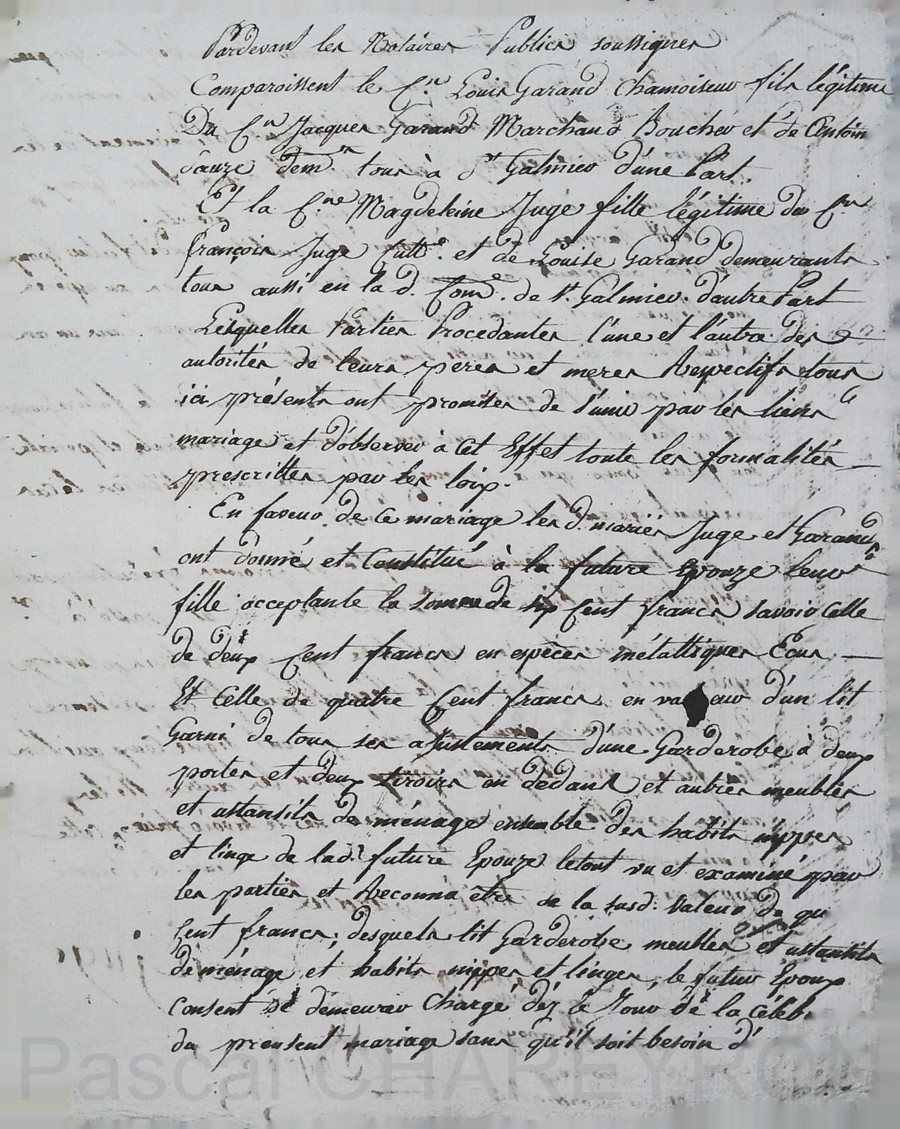 Pardevant les Notaires Publics soussignes
Comparoissent le C.en Louis Garand Chamoiseur fils légitime
Du C.en Jacques Garand Marchand Boucher et de
Sauze dem.t tous à St Galmier d'une Part.
Et la C.ne Magdeleine Juge fille légitime du C.en
françois Juge Cult.r et de Louise Garand demeurants
tous aussi en la d. Com.e de St. Galmier d'autre Part
Lesquelles Parties Procedantes l'une et l'autre des
autorités de leurs peres et meres Respectifs tous
ici présents ont promises de s'unir par les liens
mariage et d'observer à Cet Effet toute les formalités
prescrittes par les loix.
En faveur de ce mariage les d. mariés Juge et Garand
ont donné et Constitué à la future Epouze leur
fille acceptante la somme de six Cent francs savoir Celle
de deux Cent francs en espèces métalliques Ecus
Et Celle de quatre Cent francs en va eur d'un lit
Garni de tous ses ajustements d'une Garderobe à deux
portes et deux tiroirs en dedans et autres meubles
et ustansils de ménage ensemble des habits nippes
et linge de lad. future Epouze letout vu et examiné par
les parties et Reconnu être de la susd. Valeur de qu
Cent francs; desquels lit Garderobe meubles et ustansils
de ménage et habits nippes et linges, le futur Epoux
Consent de demeurer Chargé dez le Jour de la Céléb.
du preusent mariage sans qu'il soit besoin d'
Pascal CHAREYRON